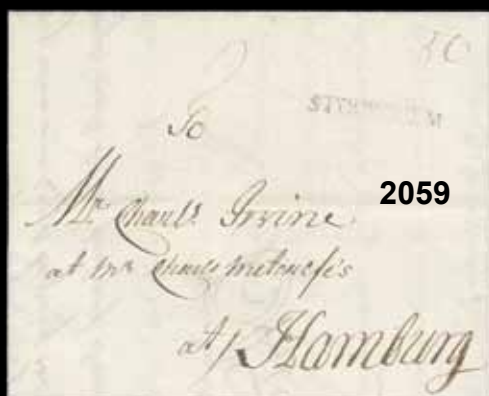 To
2059
Mr Charls Irvine
at Mr Charls Metcalfe's
at Hamburg